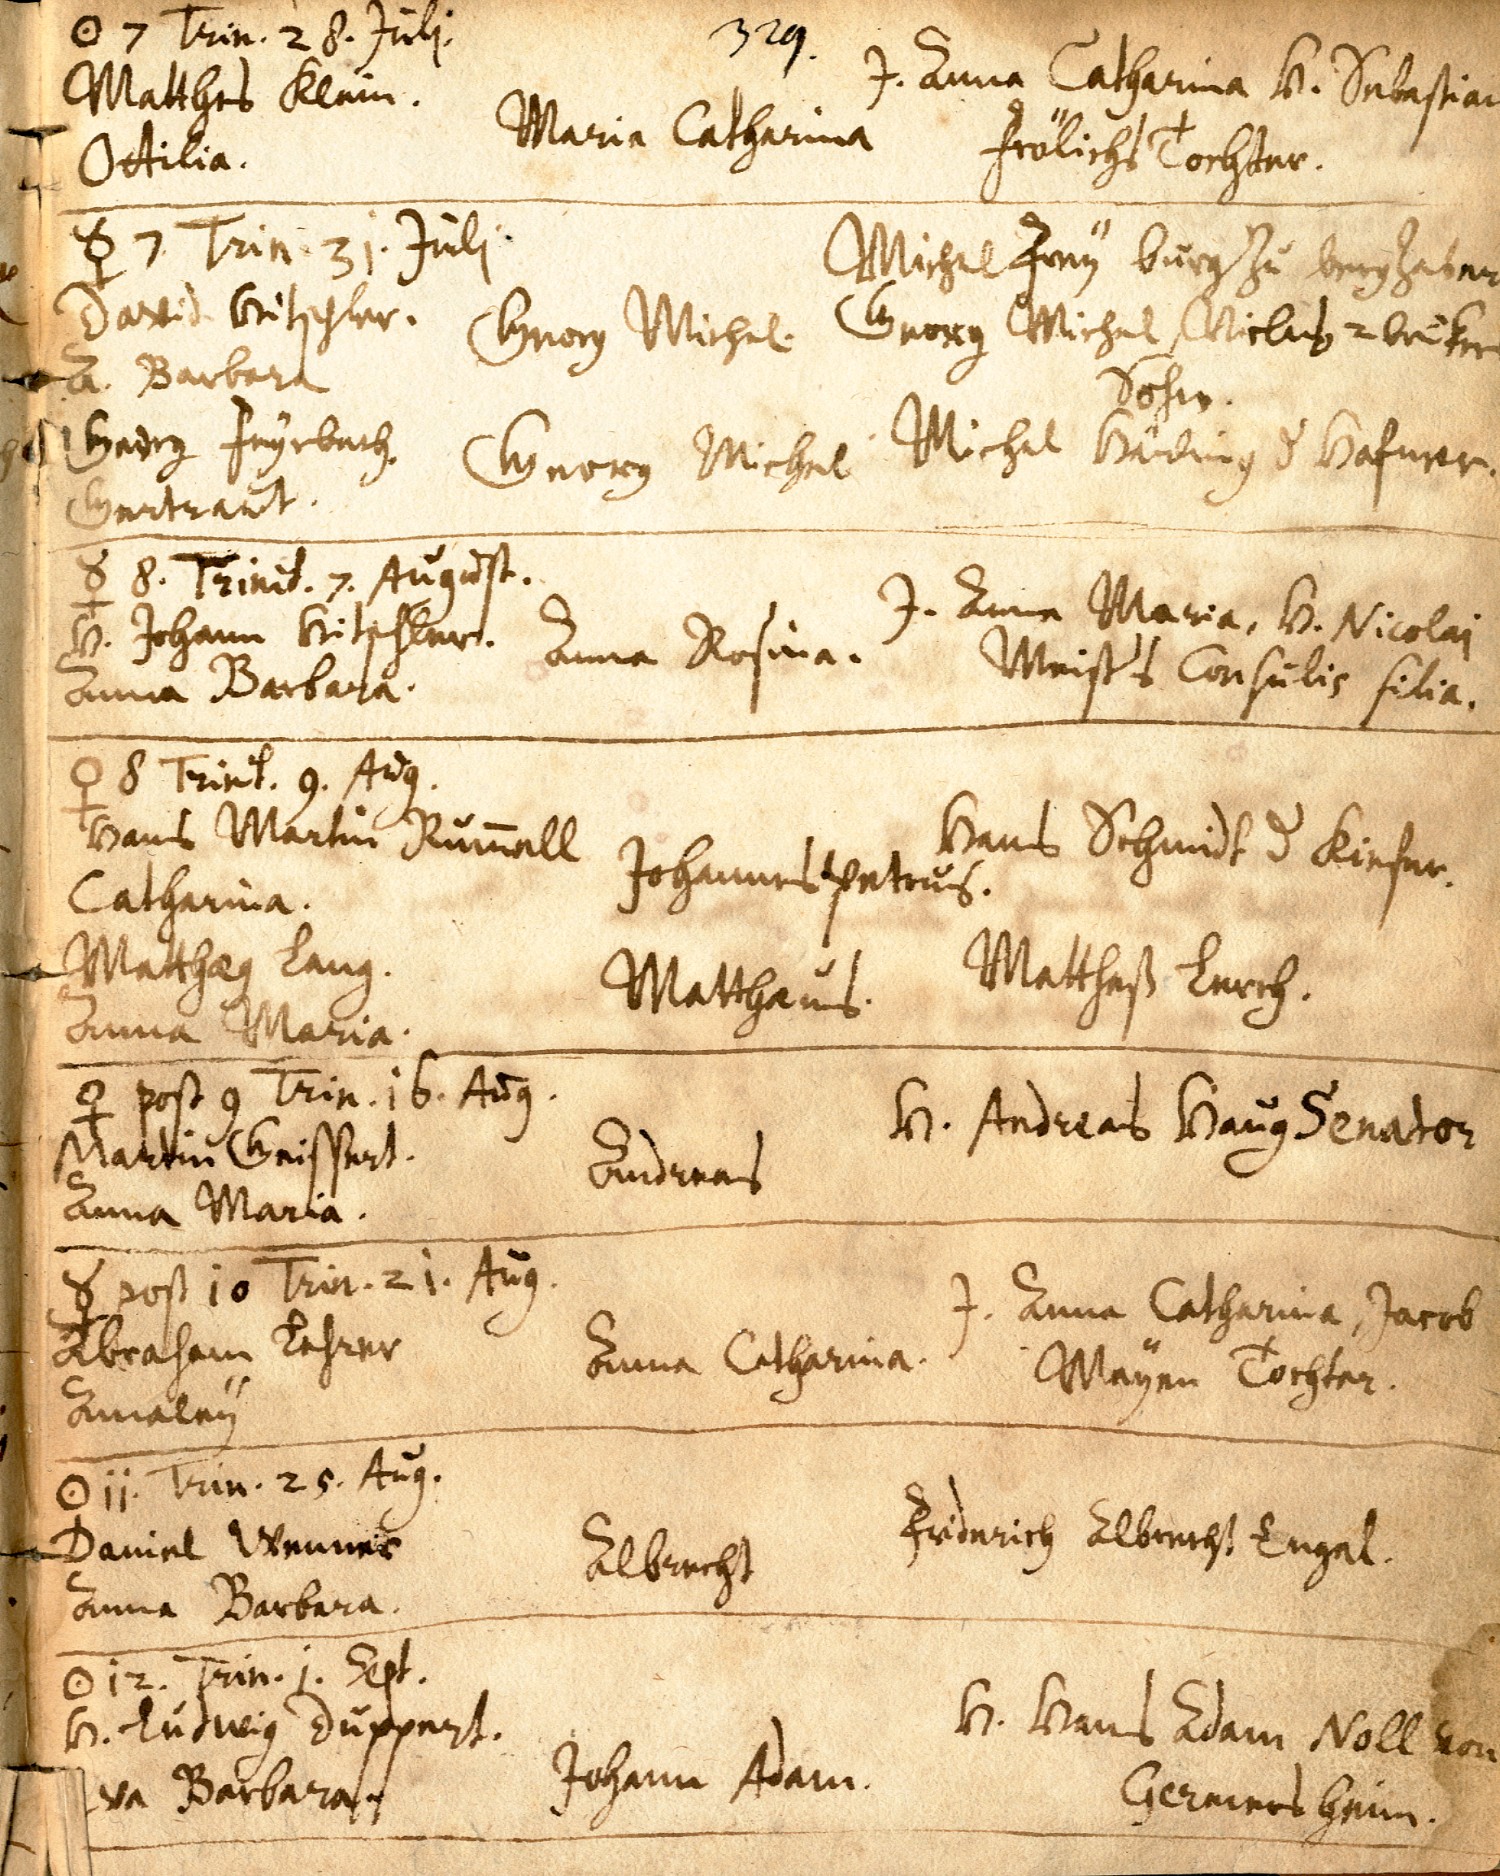 ☉ 7 Trin. 28. Julj.
329.
Matthes Klein.
Ottilia.
Maria Catharina
J. Anna Catharina H. Sebastian
Frölichs Tochter.
☿ 7 Trin. 31. Julj.
David Kitschler.
A. Barbara
Georg Michel.
Michel Freÿ burg zu
Georg Michel, Niclus
Sohn.
Georg Feÿrbach.
Gertraut.
Georg Michel
Michel Häding d Hafner.
☿ 8. Trinit. 7. August.
H. Johann Kitschler.
Anna Barbara.
Anna Rosina.
J. Anna Maria, H. Nicolai
Meist's Consulis filia.
♀ 8 Trinit. 9. Aug.
Hans Martin Rum̄ell
Catharina.
Johannes Petrus.
Hans Schmidt d Kiefer.
Matthæg Lang.
Anna Maria.
Matthæus.
Mattheß Lerch.
♀ post 9 Trin. 16. Aug.
Martin Geissert.
Anna Maria.
Andreas
H. Andreas Haug Senator
☿ post 10 Trin. 21. Aug.
Abraham Lehrer
Amaleÿ
Anna Catharina.
J. Anna Catharina, Jacob
Maÿen Tochter.
☉ 11. Trin. 25. Aug.
Daniel Wenner
Anna Barbara.
Albrecht
Friderich Albrecht Engel.
☉ 12. Trin. 1. Sept.
H. Ludwig Duppert.
Eva Barbara.
Johann Adam.
H. Hans Adam Noll von
Germersheim.